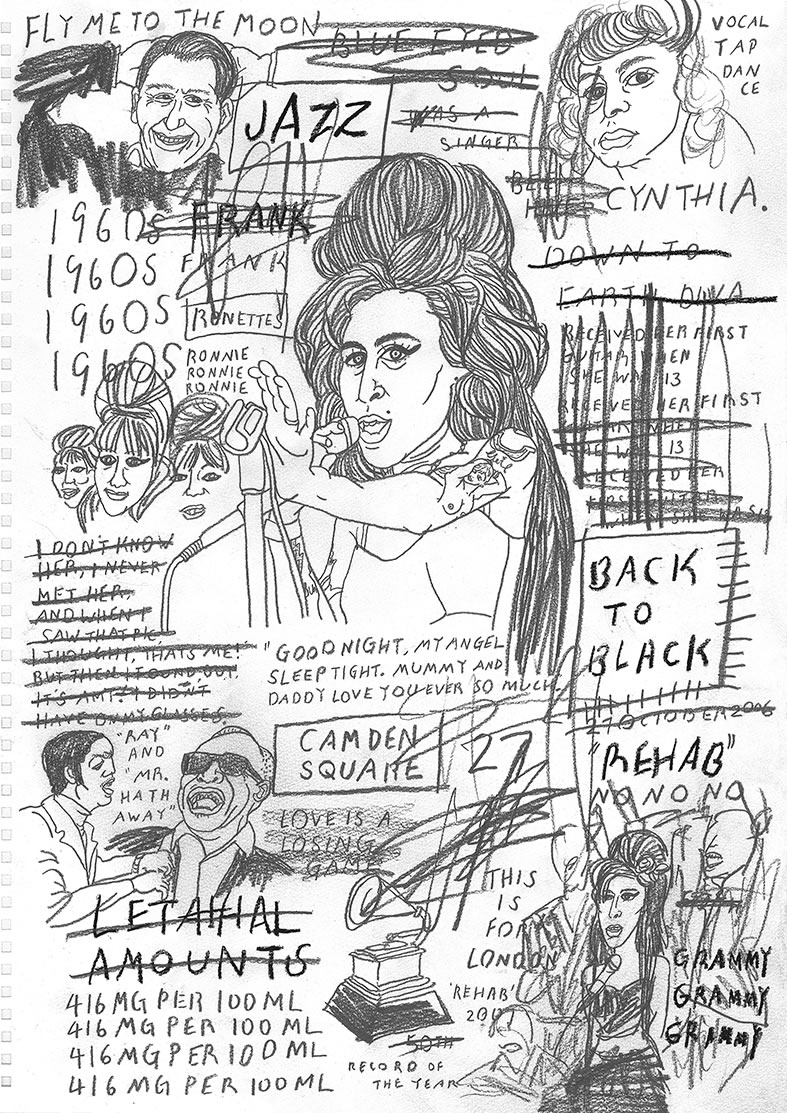 FLY ME TO THE MOON
BLUE EYED
SOUL
JAZZ
WAS A
SINGER
VOCAL
TAP
DAN
CE
CYNTHIA.
1960S FRANK
1960S FRANK
1960S RONETTES
1960S
RONNIE
RONNIE
RONNIE
DOWN TO
EARTH DIVA
RECEIVED HER FIRST
GUITAR WHEN
SHE WAS 13
RECEIVED HER FIRST
GUITAR WHEN
SHE WAS 13
RECEIVED HER
FIRST GUITAR
WHEN SHE WAS
I DON'T KNOW
HER, I NEVER
MET HER,
AND WHEN I
SAW THAT PIC,
I THOUGHT, 'THATS ME!'
BUT THEN I FOUND OUT,
IT'S AMY! I DIDN'T
HAVE ON MY GLASSES.
"GOODNIGHT, MY ANGEL
SLEEP TIGHT. MUMMY AND
DADDY LOVE YOU EVER SO MUCH.
BACK
TO
BLACK
27 OCTOBER 2006
"REHAB"
NO NO NO
"RAY"
AND
"MR.
HATH
AWAY"
CAMDEN
SQUARE
27
LOVE IS A
LOSING
GAME
LETAHAL
AMOUNTS
416 MG PER 100 ML
416 MG PER 100 ML
416 MG PER 100 ML
416 MG PER 100 ML
THIS
IS
FOR
LONDON
'REHAB'
50TH
RECORD OF
THE YEAR
GRAMMY
GRAMMY
GRAMMY